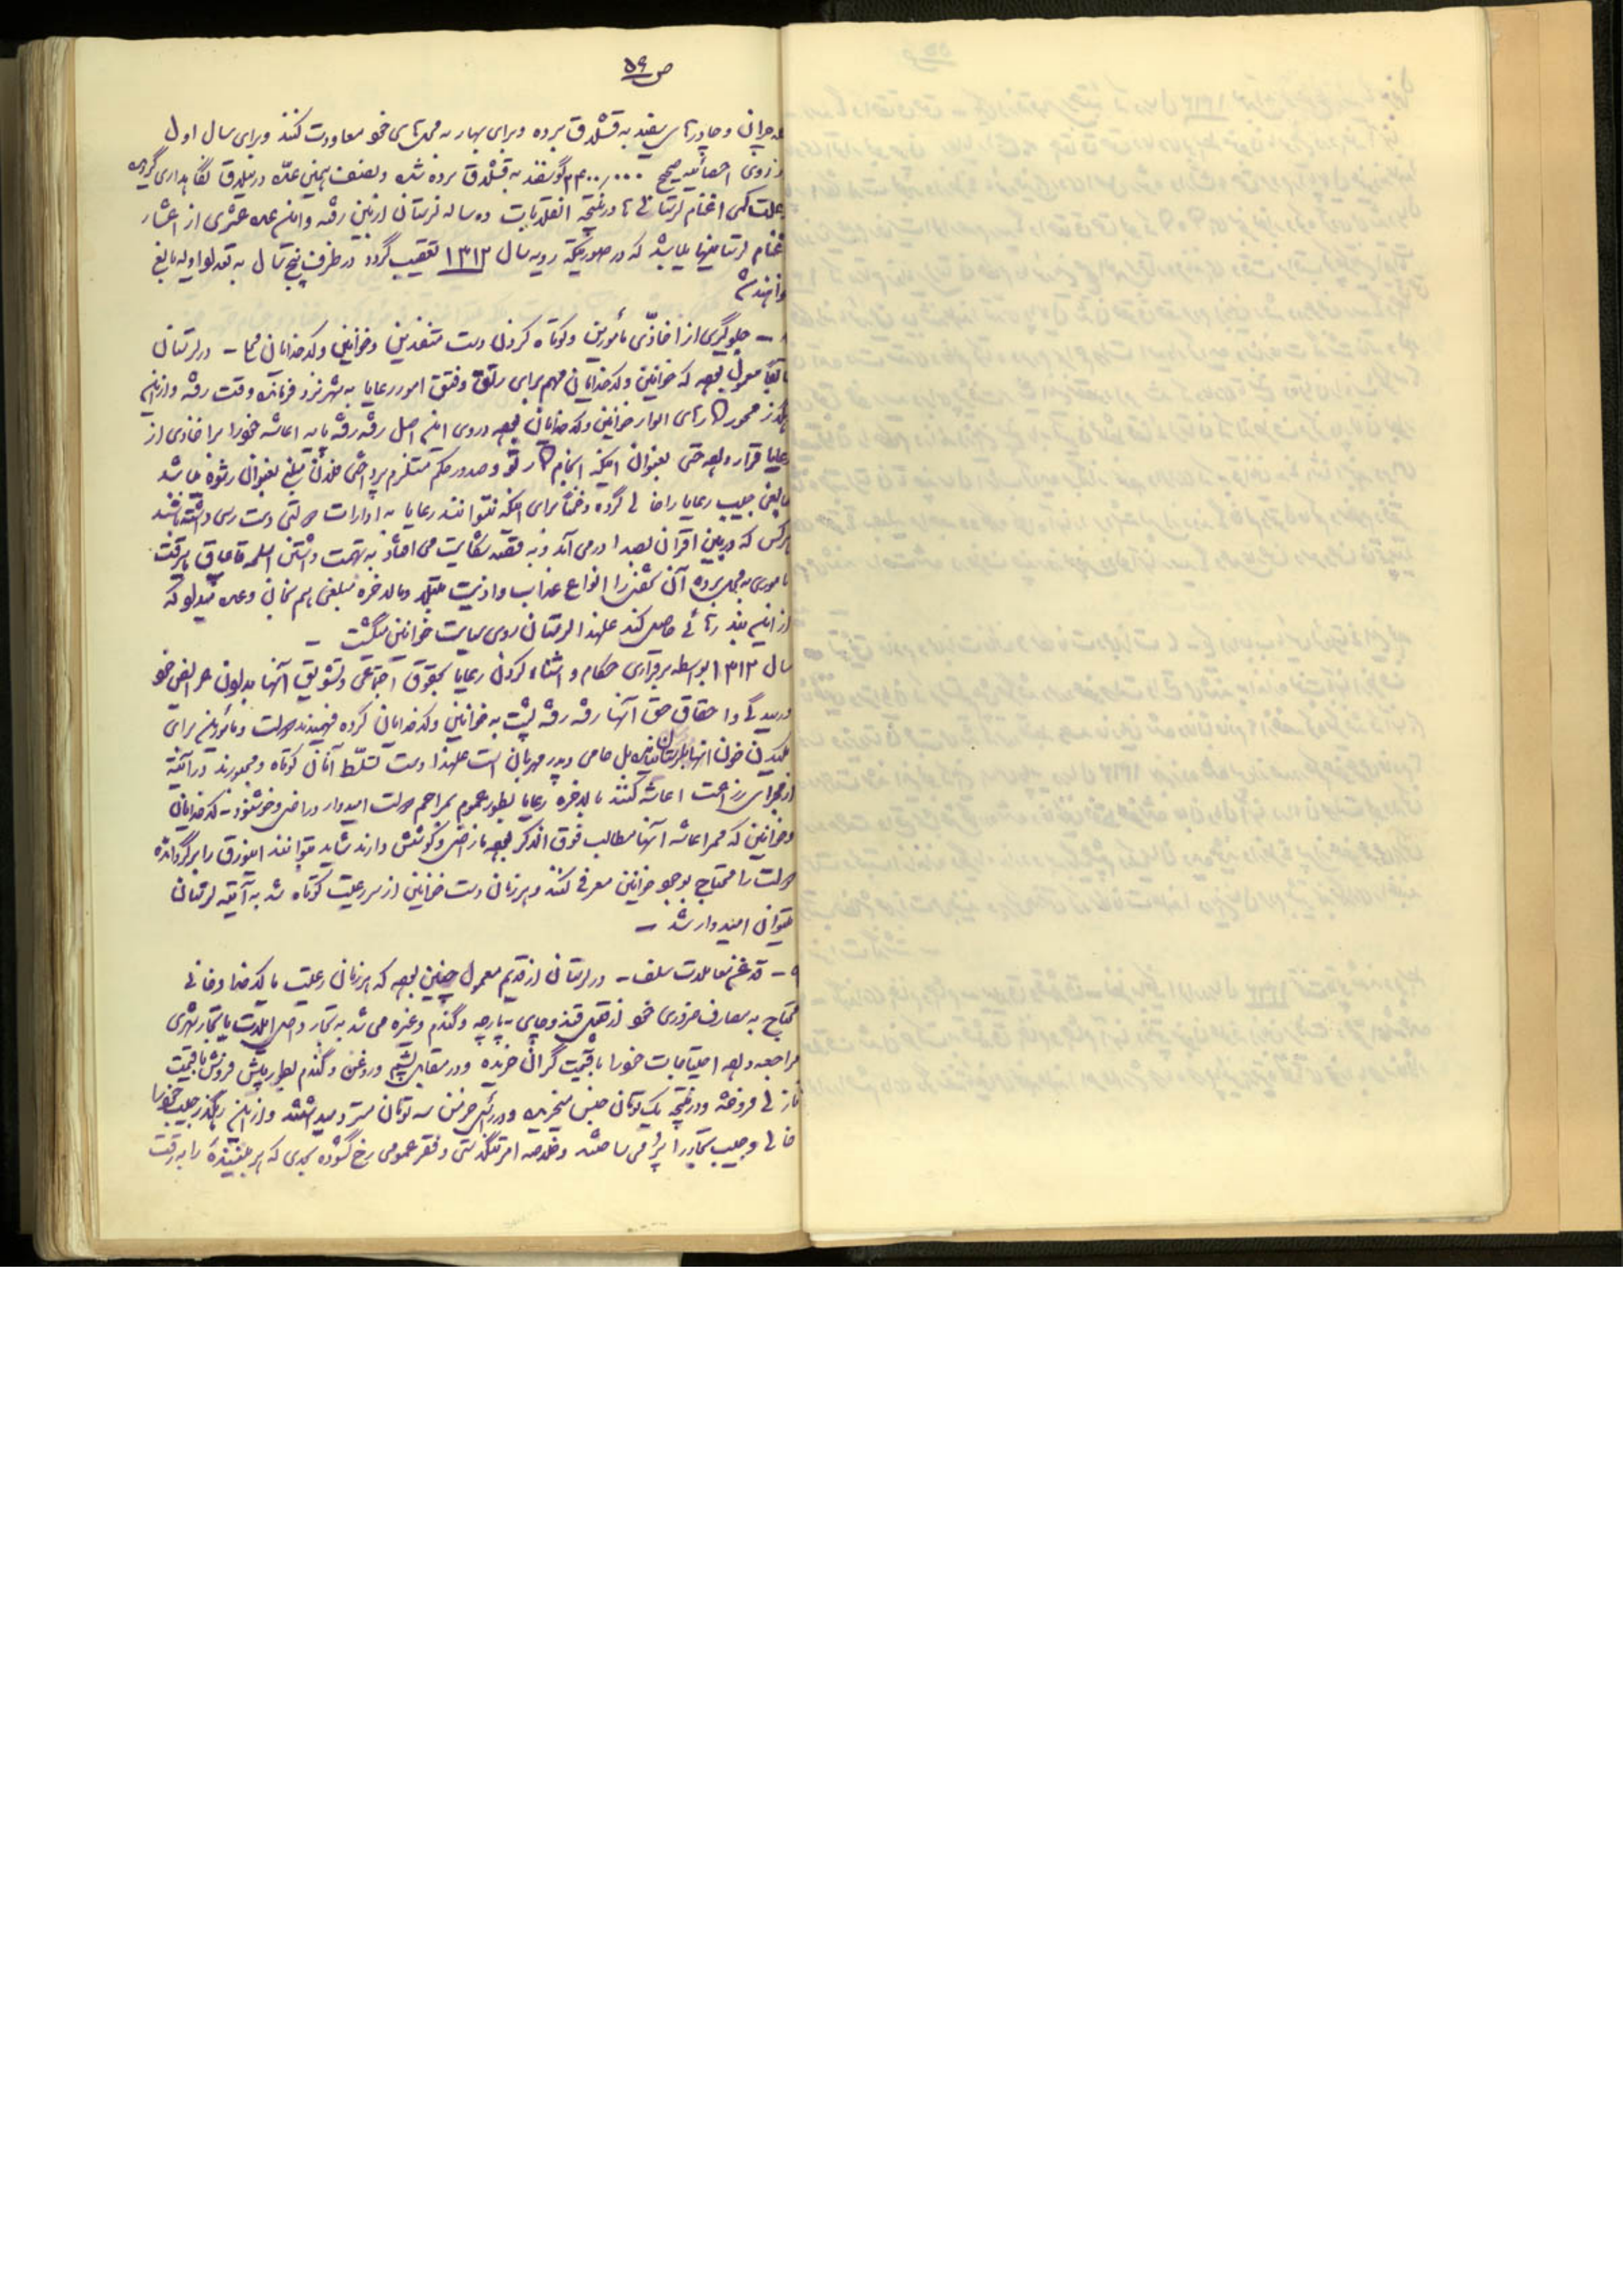 ص ۵۶
چرانی و چادرهای سفید به قشلاق برده و برای بهار به محلهای خود معاودت کنند و برای سال اول
از روی احصائیه صحیح ۲۴۰۰/۰۰۰ گوسفند به قشلاق برده شده و نصف همین عده در ییلاق نگاهداری گردیده
علت کمی اغنام لرستانی‌ها در نتیجه انقلابات ده ساله لرستان از بین رفته و این عده عشری از اعشار
اغنام لرستانیها میباشد که در صورتیکه رویه سال ۱۳۱۳ تعقیب گردد در ظرف پنج سال به تعداد اولیه بالغ
خواهند شد
۸ – جلوگیری از اخاذی مأمورین و کوتاه کردن دست متنفذین و خوانین و کدخدایان محل – در لرستان
سابقا معمول بوده که خوانین و کدخدایان مهم برای رتق و فتق امور رعایا به شهر نزد فرمانده وقت رفته و از این
رهگذر محور کارهای الوار خوانین و کدخدایان بوده و روی این اصل رفته رفته پایه اعاشه خود را بر اخاذی از
رعایا قرار داده حتی بعنوان اینکه انجام کار تو و صدور حکم مستلزم پرداختن فلان مبلغ بعنوان رشوه میباشد
مبالغی جیب رعایا را خالی کرده و ضمنا برای اینکه نتوانند رعایا به ادارات دولتی دست رسی داشته باشند
هر کس که در بین اقران بصدا در می آمد و به فکر شکایت می افتاد به تهمت داشتن اسلحه قاچاق یا سرقت
مأموری به محل برده آن شخص را انواع عذاب و اذیت مبتلا و بالاخره مبلغی هم خانی وعده میداد که
از این بند رهائی حاصل کند علیهذا لرستان روی سیاست خوانین میگشت –
سال ۱۳۱۳ بواسطه برقراری حکام و آشنا کردن رعایا بحقوق اجتماعی و تشویق آنها بدادن عرایض خود
و رسیدگی و احقاق حق آنها رفته رفته پشت به خوانین و کدخدایان کرده فهمیدند دولت و مأمورین برای
مکیدن خون آنها به لرستان نیامده بل حامی و پدر مهربان است علیهذا دست تسلط آنان کوتاه و مجبورند در آتیه
از مجرای زراعت اعاشه کنند بالاخره رعایا بطور عموم بمراحم دولت امیدوار و راضی و خوشنود – کدخدایان
و خوانین که ممر اعاشه آنها مطالب فوق الذکر بوده ناراضی و کوشش دارند شاید بتوانند این ورق را برگردانده
دولت را محتاج بوجود خوانین معرفی کنند و هر زمان دست خوانین از سر رعیت کوتاه شد به آتیه لرستان
میتوان امیدوار شد –
۹ – قدغن معاملات سلف – در لرستان از قدیم معمول چنین بوده که هر زمان رعیت یا کدخدا و خانی
محتاج به مصارف ضروری خود از قبیل قند و چای – پارچه و گندم و غیره می شد به تجار داخل ایلات یا تجار شهری
مراجعه و همه احتیاجات خود را با قیمت گران خریده و در مقابل پشم و روغن و گندم بطور پیش فروش با قیمت
نازلی فروخته و در نتیجه یک تومان جنس میخریده و در رأس خرمن سه تومان مسترد میداشتند و از این رهگذر جیب خود را
خالی و جیب تجار را پر می ساختند و خلاصه امر تنگدستی و فقر عمومی رخ گشوده بحدی که هر بیننده را به رقت